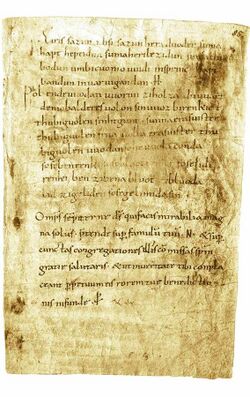 Eiris sazun idisi sazun hera duoder suma
hapt heptidun sumaherilezidun sumaclu
bodun umbicuoniouuidi insprinc hapt
bandun inuaruigandun · H ·
Phol endeuuodan uuorun ziholza du uuart
demobalderes uolon sinuuoz birenkict
thubiguolen sinhtgunt · sunnaerasuister
thubiguolen friia uolla erasuister thu
biguolen uuodan sohe uuolaconda
sosebenrenki sosebluotrenki soselidi
renki ben zibena bluot zibluoda
lid zigeliden sosegelimida sin ·
Omps sempiterne ds̄ quifacis mirabilia mag
na solus p̄tende sup famulū tuū N· & sup
cunctas congregationes illi cōmissas spm̄
gratię salutaris & ut inueritate tibi compla
ceant ppetuum eis rorem tuę benedictio
nis infunde p